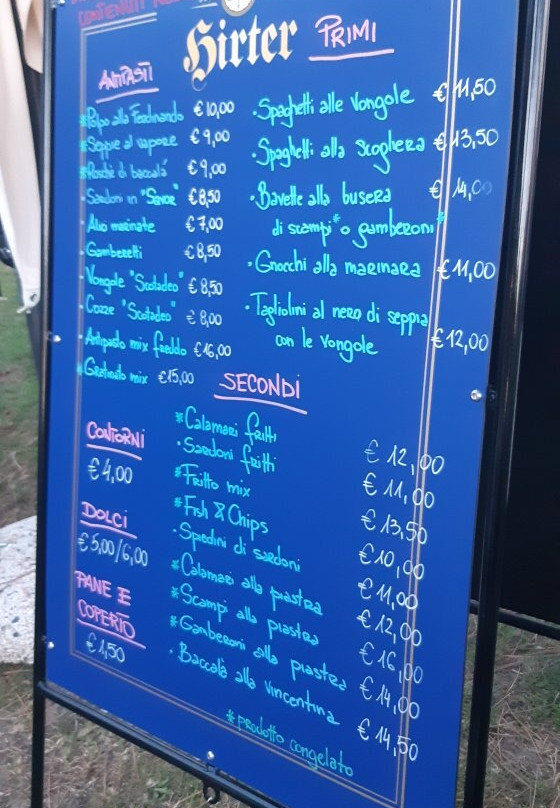 CONTENUTI
Hirter
ANTIPASTI
*Polpo alla Ferdinando €10,00
*Seppie al vapore €9,00
*Rosché di baccalà €9,00
Sardoni in "Savor" €8,50
Alici marinate €7,00
Gamberetti €8,50
Vongole "Scotadeo" €8,50
Cozze "Scotadeo" €8,00
Antipasto mix freddo €16,00
*Gratinato mix €15,00
PRIMI
·Spaghetti alle Vongole €11,50
·Spaghetti alla Scogliera €13,50
·Bavette alla busera € 14,00
di scampi* o gamberoni*
·Gnocchi alla marinara €11,00
·Tagliolini al nero di seppia
con le vongole €12,00
SECONDI
*Calamari fritti € 12,00
·Sardoni fritti € 11,00
*Fritto mix € 13,50
*Fish & Chips € 10,00
·Spedini di sardoni € 11,00
*Calamari alla piastra € 12,00
*Scampi alla piastra € 16,00
*Gamberoni alla piastra € 14,00
·Baccalà alla Vincentina € 14,50
*prodotto congelato
CONTORNI
€4,00
DOLCI
€5,00/6,00
PANE E
COPERTO
€1,50